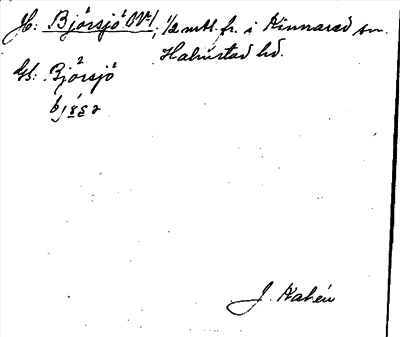 Jb: Björsjö OVl, 1/2 mtl. fr. i Kinnared sn.
Halmstad hd.
Gs: Björsjö
b/852
J. Kalén